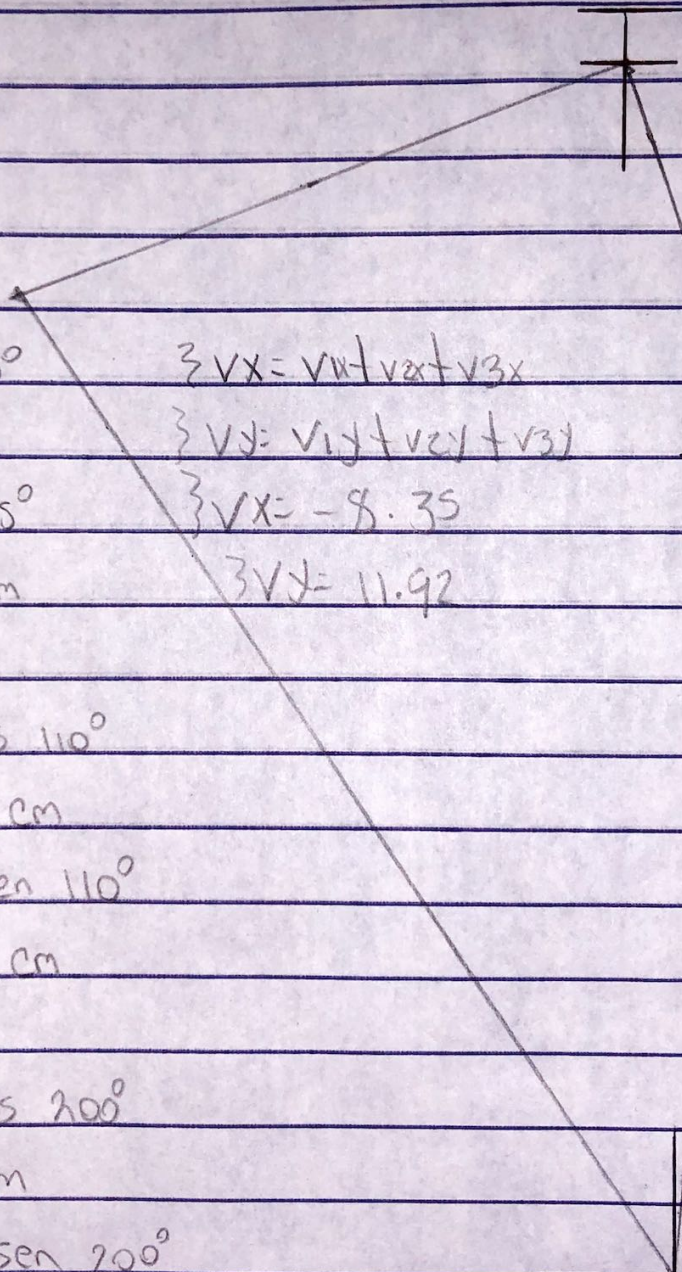 °
}Vx= V1x+V2x+V3x
}Vy= V1y+V2y+V3y
5°
}Vx= -8.35
m
}Vy= 11.92
110°
cm
en 110°
cm
s 200°
m
sen 200°